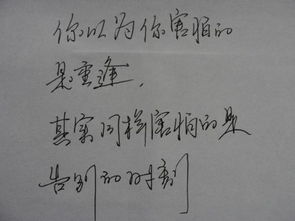 你以为你害怕的
是重逢，
其实同样害怕的是
告别的时刻